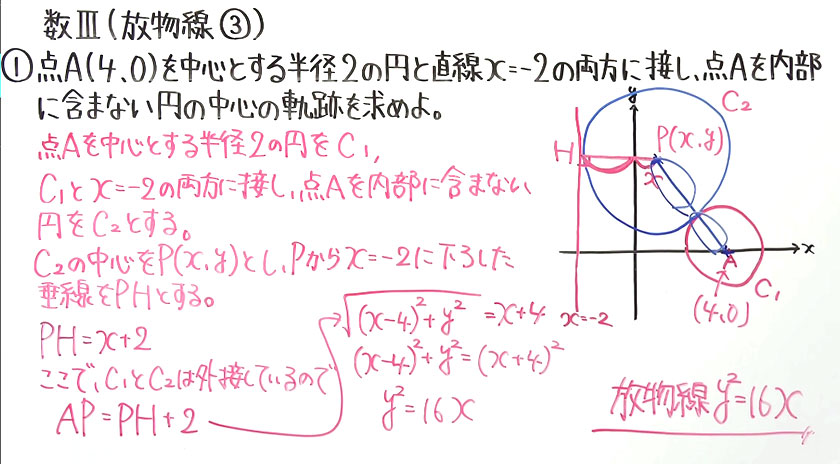 数Ⅲ(放物線③)
①点A(4,0)を中心とする半径2の円と直線x=-2の両方に接し、点Aを内部
に含まない円の中心の軌跡を求めよ。
点Aを中心とする半径2の円をC₁,
C₁とx=-2の両方に接し、点Aを内部に含まない
円をC₂とする。
C₂の中心をP(x,y)とし、Pからx=-2に下ろした
垂線をPHとする。
PH=x+2
ここで、C₁とC₂は外接しているので
AP=PH+2
√((x-4)²+y²)=x+4
(x-4)²+y²=(x+4)²
y²=16x
放物線y²=16x
y
C₂
H
P(x,y)
x
x
A
C₁
(4,0)
x=-2